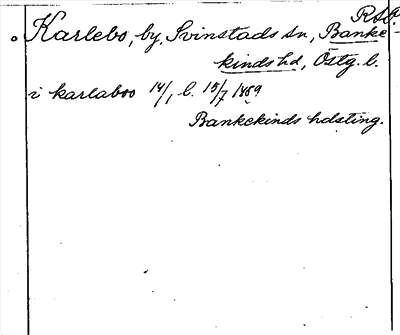 RAÖ.
Karlebo, by, Svinstads sn, Banke-
kinds hd, Östg. l.
i karlaboo 14/1, l. 15/7 1489
Bankekinds hdsting.